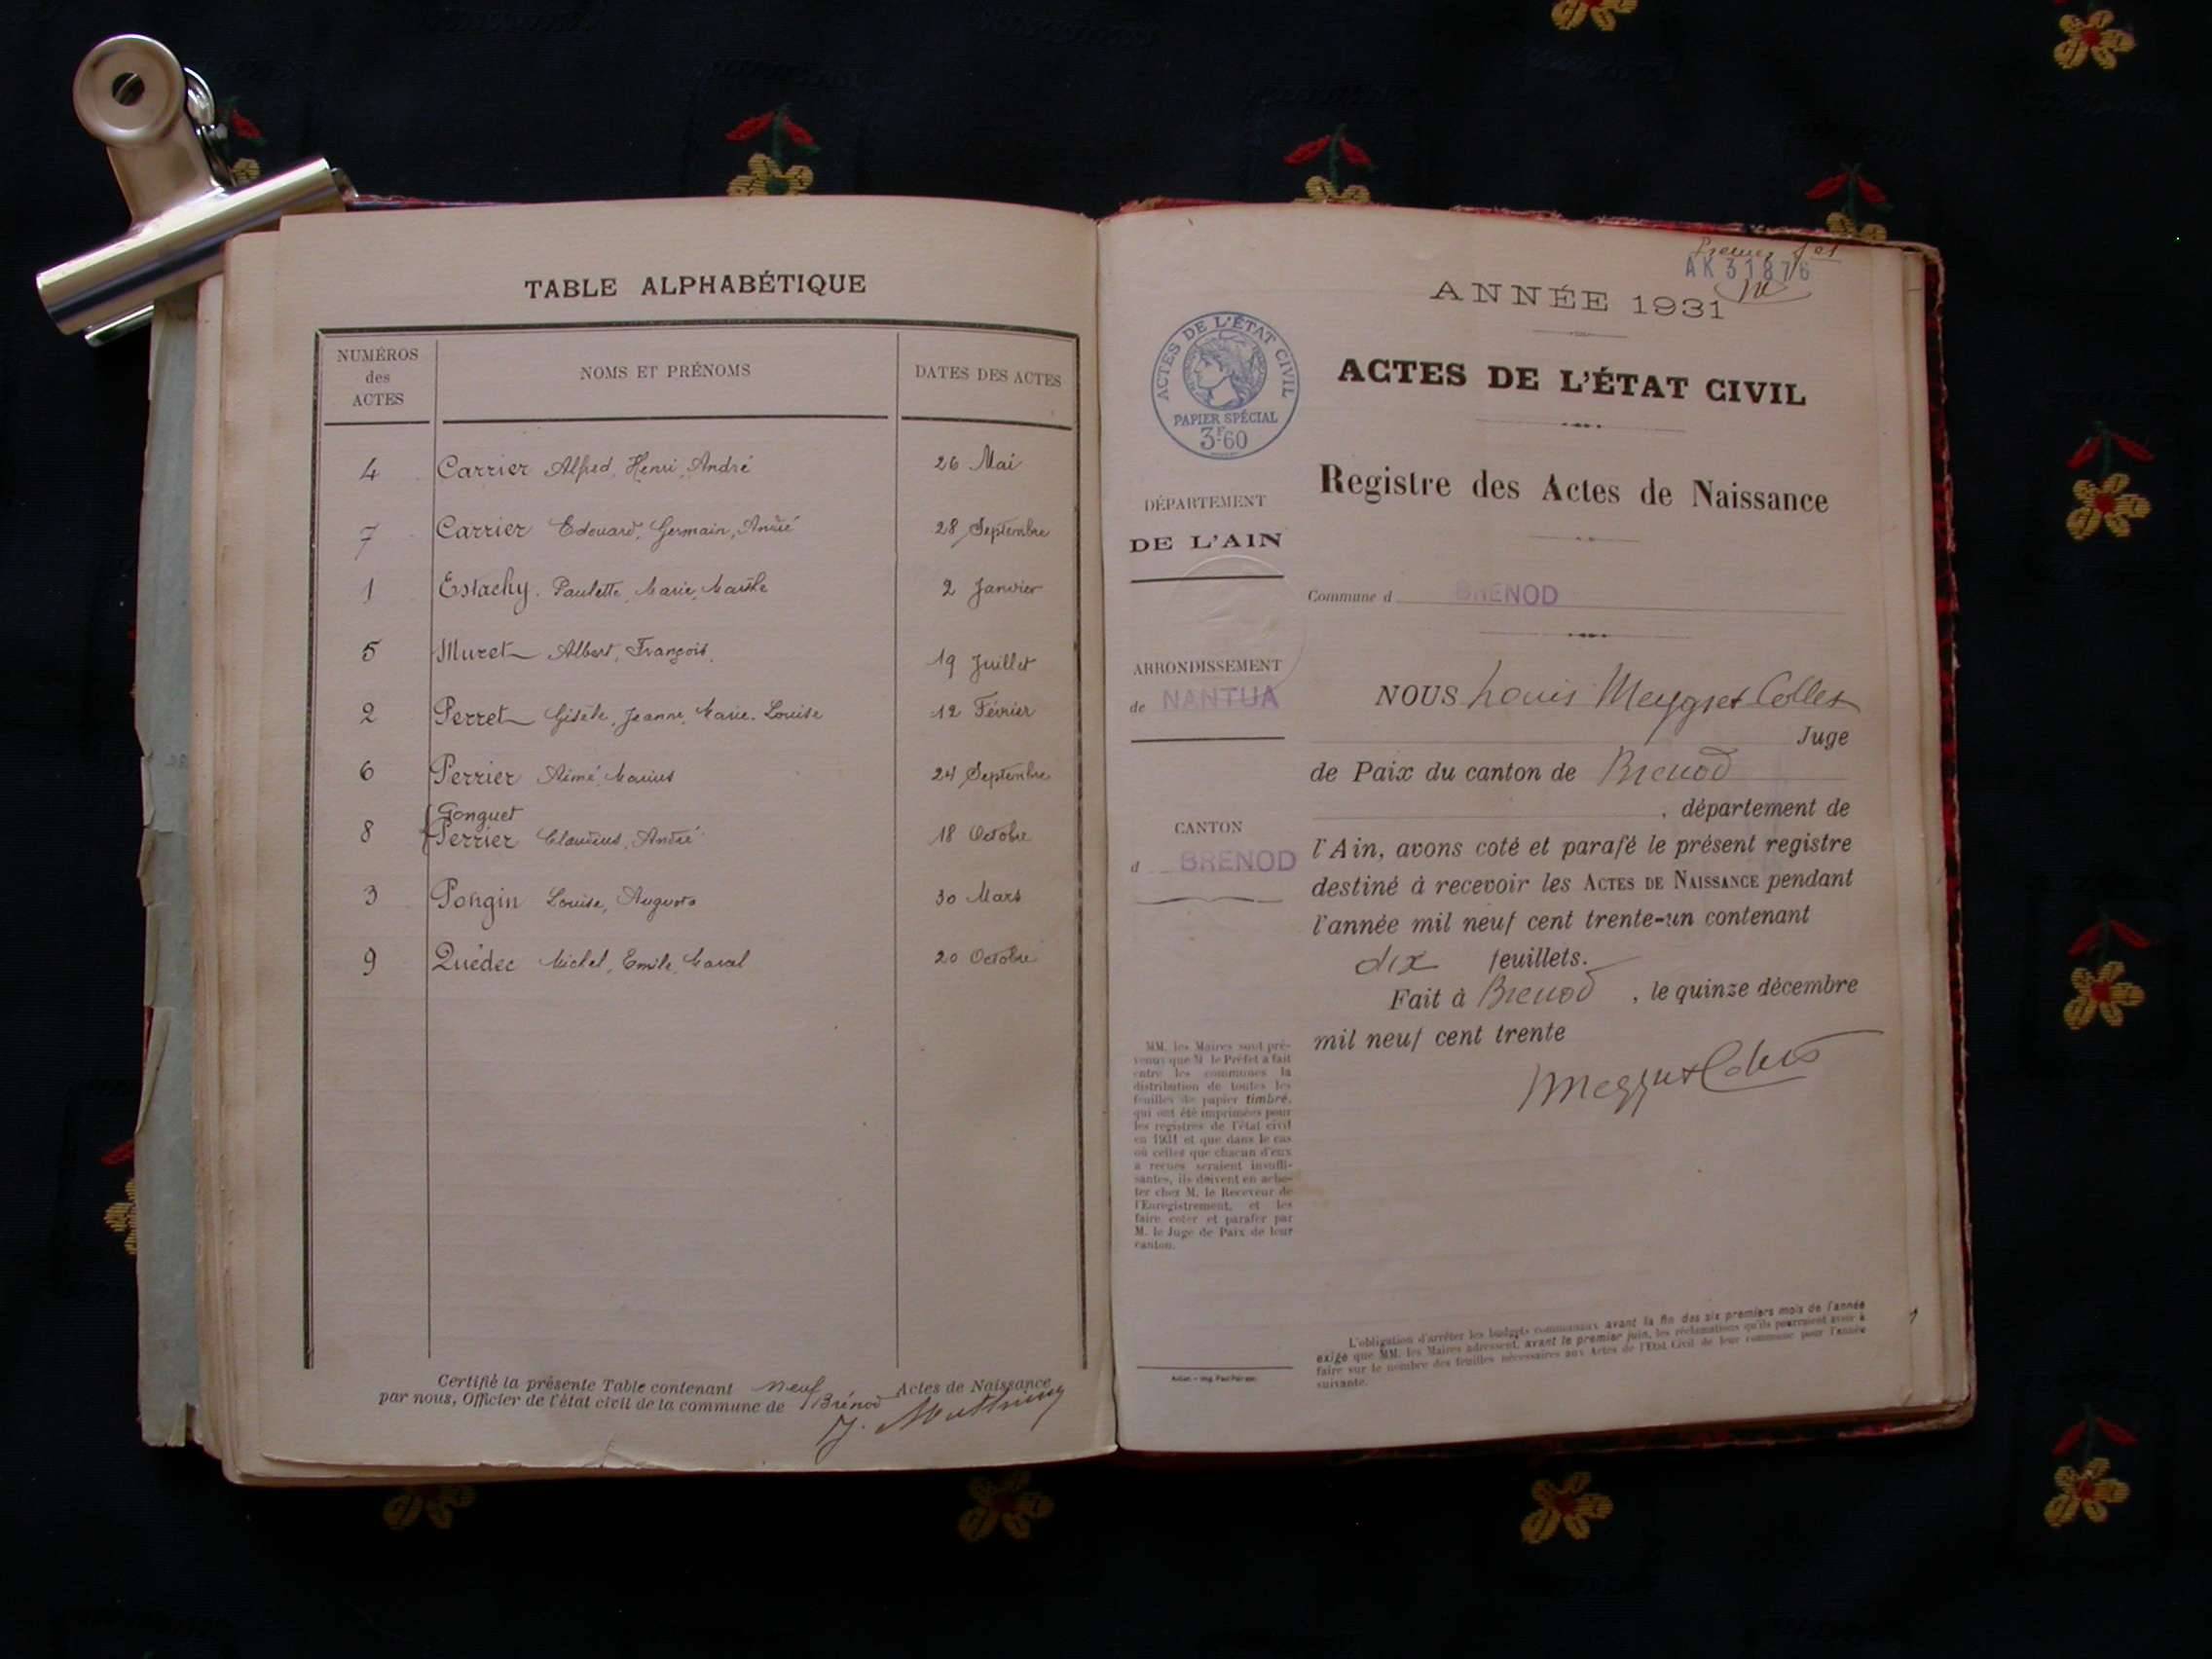 TABLE ALPHABÉTIQUE
NUMÉROS
des
ACTES
NOMS ET PRÉNOMS
DATES DES ACTES
4 Carrier Alfred, Henri, André 26 Mai
7 Carrier Edouard, Germain, André 28 Septembre
1 Estachy. Paulette, Marie, Marthe 2 Janvier
5 Muret Albert, François. 19 Juillet
2 Perret Gisèle, Jeanne, Marie. Louise 12 Février
6 Perrier Aimé, Marius 24 Septembre
Gonguet
8 Perrier Claudius, André 18 Octobre
3 Pongin Louise, Augusta 30 Mars
9 Quédec Michel, Emile, Marcel 20 Octobre
Certifié la présente Table contenant neuf Actes de Naissance
par nous, Officier de l'état civil de la commune de Brénod
AK 31876
ANNÉE 1931
ACTES DE L'ÉTAT CIVIL
PAPIER SPÉCIAL
3F60
ACTES DE L'ÉTAT CIVIL
Registre des Actes de Naissance
DÉPARTEMENT
DE L'AIN
Commune d BRENOD
ARRONDISSEMENT
de NANTUA
CANTON
d BRENOD
NOUS Louis Meygret Collet
Juge
de Paix du canton de Brenod
, département de
l'Ain, avons coté et parafé le présent registre
destiné à recevoir les ACTES DE NAISSANCE pendant
l'année mil neuf cent trente-un contenant
dix feuillets.
Fait à Brenod , le quinze décembre
mil neuf cent trente
MM. les Maires sont pré-
venus que M. le Préfet a fait
entre les communes la
distribution de toutes les
feuilles de papier timbré,
qui ont été imprimées pour
les registres de l'état civil
en 1931 et que dans le cas
où celles que chacun d'eux
a reçues seraient insuffi-
santes, ils doivent en ache-
ter chez M. le Receveur de
l'Enregistrement, et les
faire coter et parafer par
M. le Juge de Paix de leur
canton.
L'obligation d'arrêter les budgets communaux avant la fin des six premiers mois de l'année
exige que MM. les Maires adressent, avant le premier juin, les réclamations qu'ils pourraient avoir à
faire sur le nombre des feuilles nécessaires aux Actes de l'Etat Civil de leur commune pour l'année
suivante.